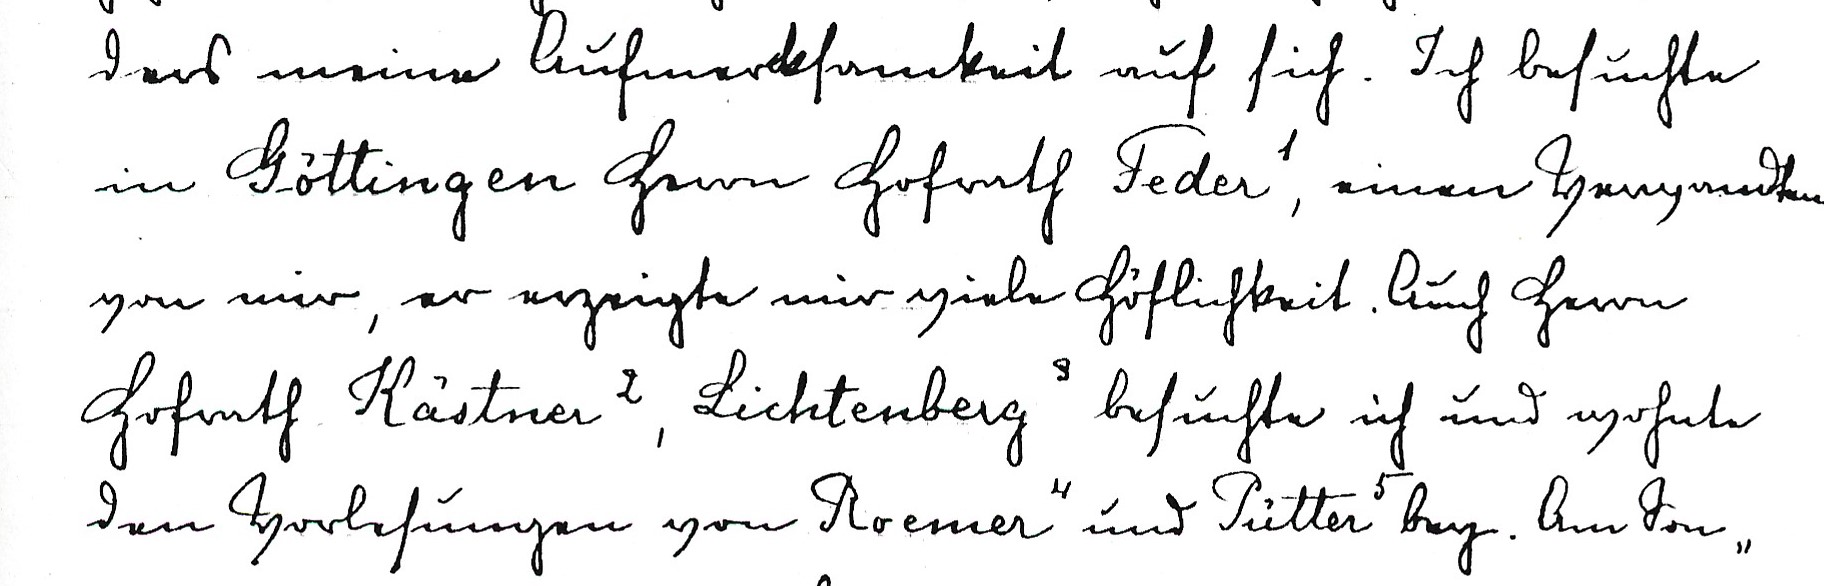 ders meine Aufmercksamkeit auf sich. Ich besuchte
in Göttingen Herrn Hofrath Feder¹, einen Verwandten
von mir, er erzeigte mir viele Höflichkeit. Auch Herrn
Hofrath Kästner², Lichtenberg³ besuchte ich und wohnte
den Vorlesungen von Roemer⁴ und Pütter⁵ bey. Am Son„